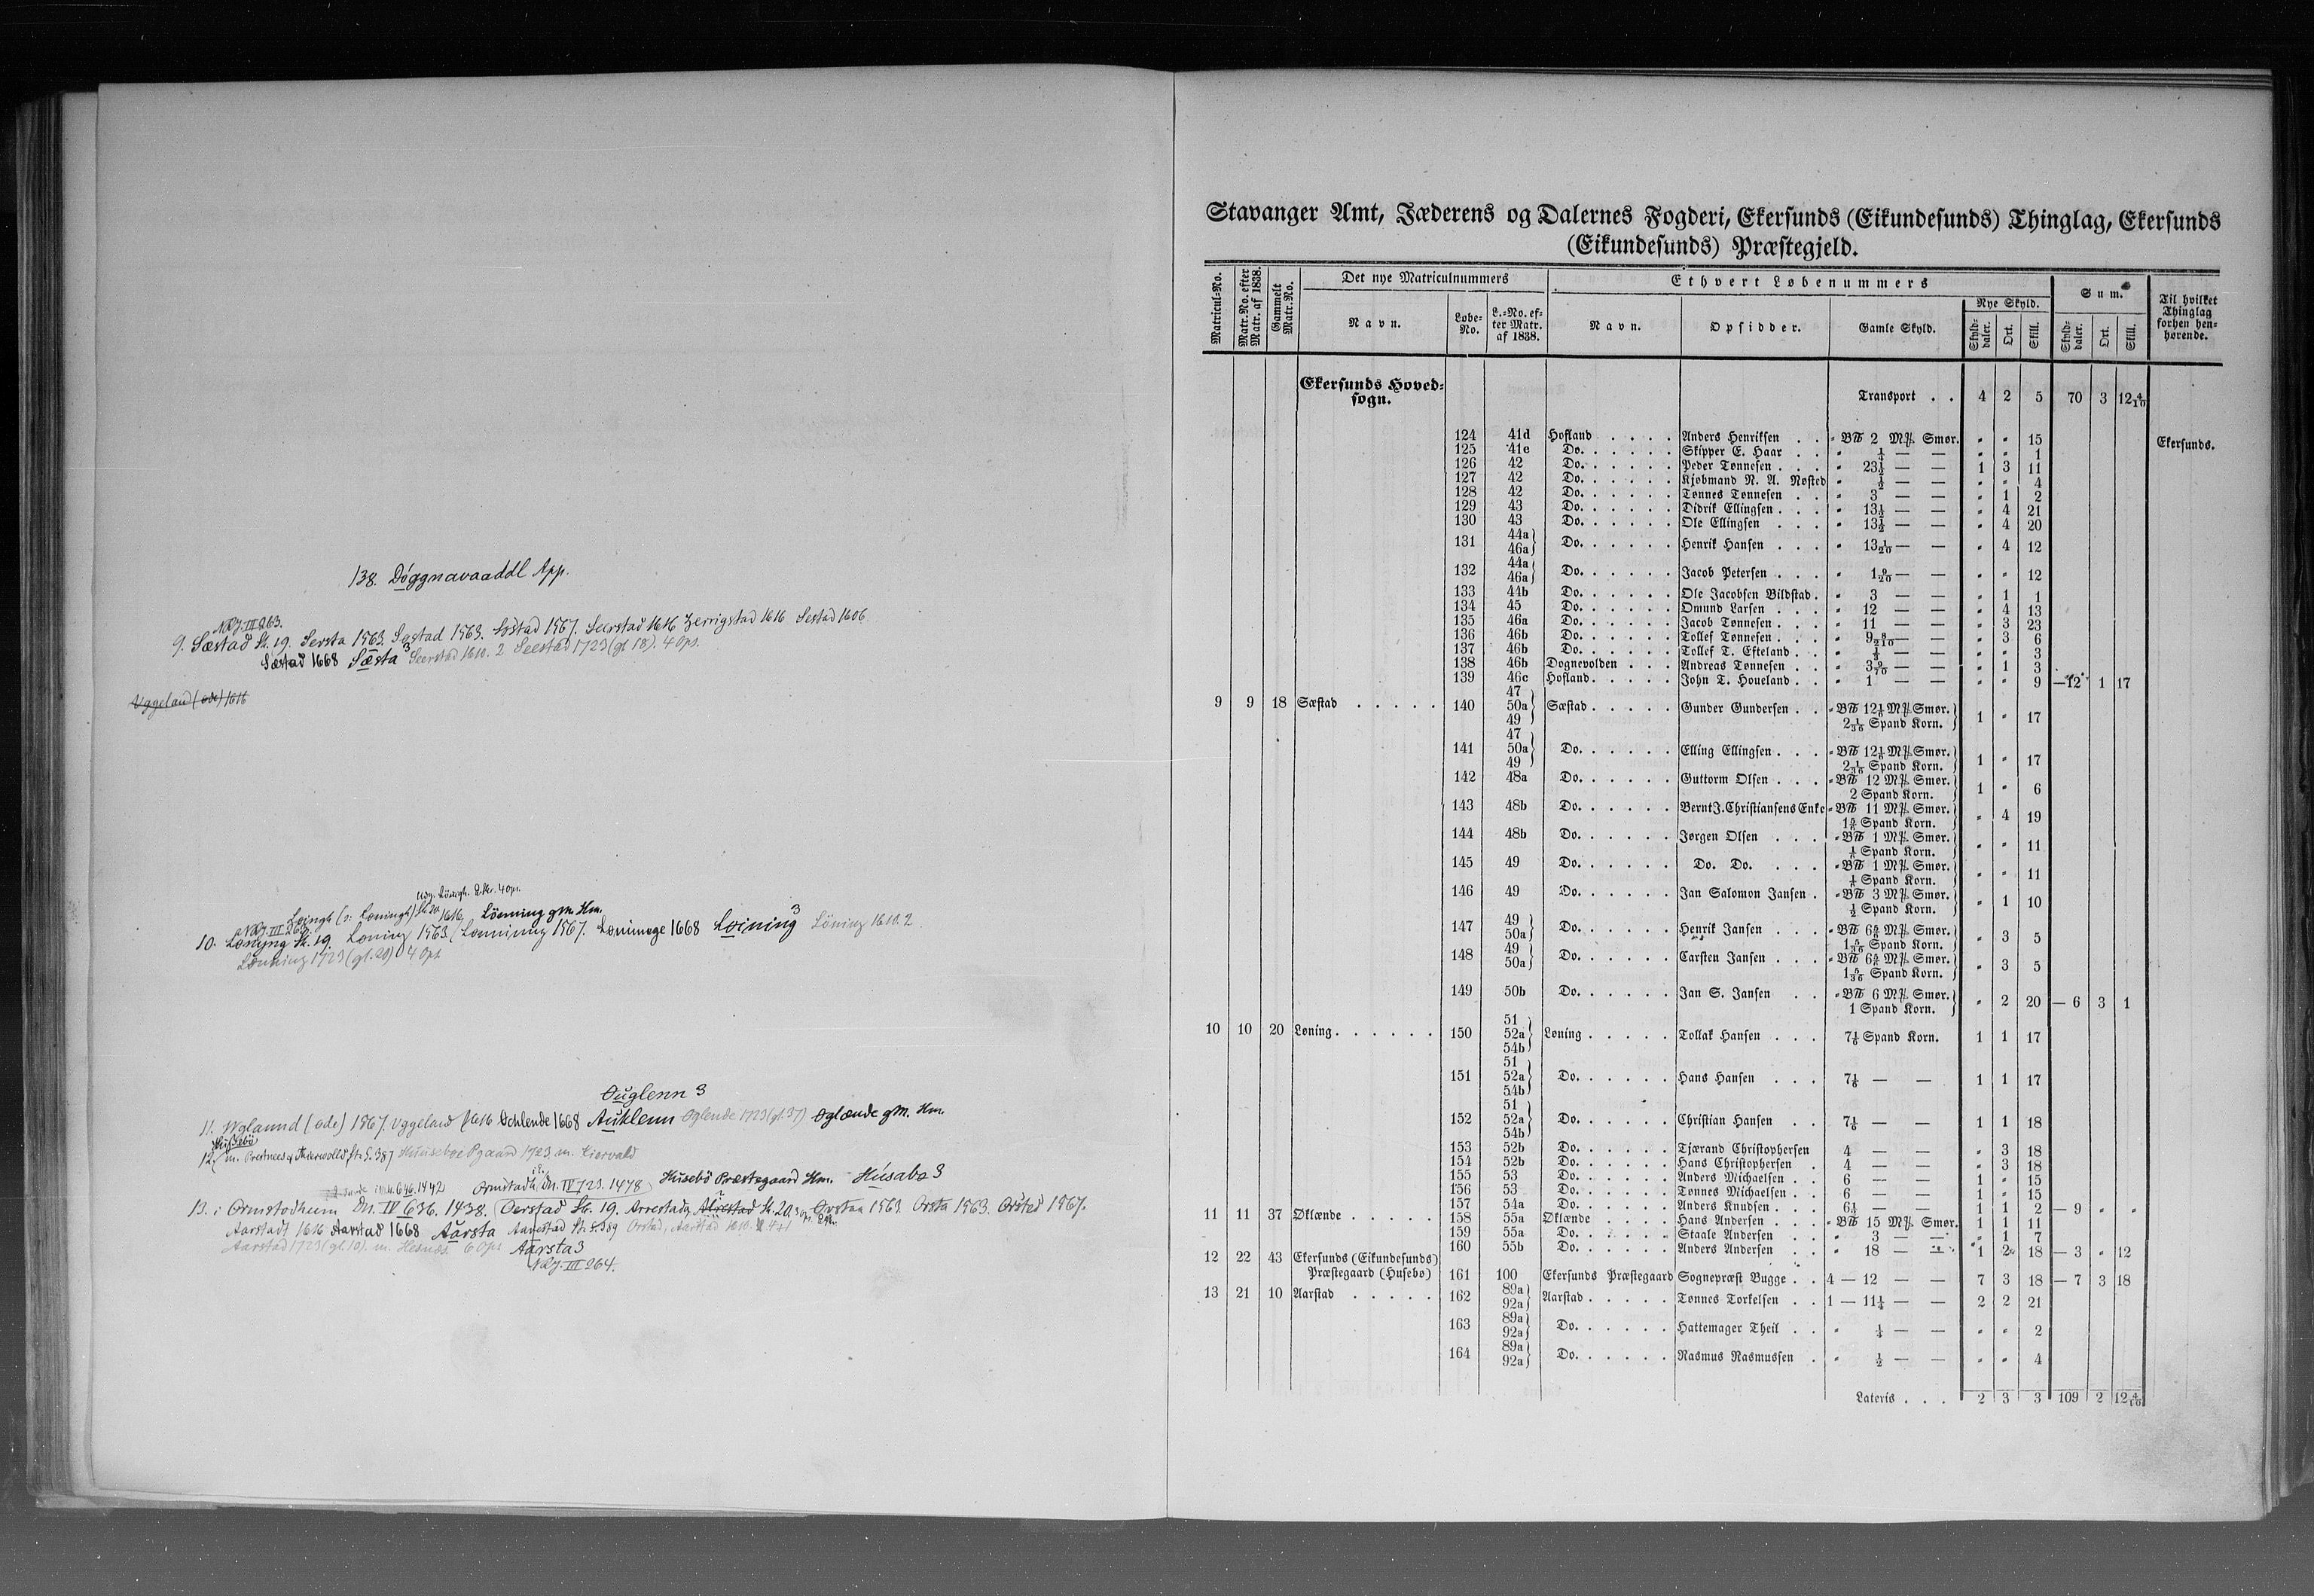 138. Döggnavaaddl App.
NRJ. III 263.
9. Sæstad St. 19. Sersta 1563. Søstad 1563. Søstad 1567. Seerstad 1616 Zerrigstad 1616 Sestad 1606
Sæstad 1668 Sæsta 3 Seerstad 1610. 2 Seestad 1723 (gl 18). 4 Ops.
Uggeland (øde) 1616
Udg. Löningh. 2 Kr. 4 Ops.
Loingh (ɔ: Løningh) St. 20. 1616. Löenning gM. Hm.
NRJ. III 263
10. Lønyng St. 19. Loning 1563. Lønninng 1567. Lønninge 1668 Loining 3 Löning 1610. 2
Lønning 1723 (gl. 20) 4 Ops
Ouglenn 3
11. Wglannd (øde) 1567. Uggeland 1616 Ochlende 1668 Auklenn Oglende 1723 (gl. 37) Oglænde gM. Hm.
Husebö
12. Huuseboe Pgaard 1723 m.
Husebö Præstegaard Hm. Húsabø 3
Ormstadh DN. IV 723. 1478
13. i Ormstodhum DN. IV 636. 1438. Oerstad St. 19. Arrestadt St. 20. Orstaa 1563. Orsta 1563. Orsted 1567.
Aarstadt 1616 Aarstad 1668 Aarsta
Aarstad 1723 (gl. 10). m. Hesnæs 6 Ops Aarsta 3
NRJ. III 264.
Stavanger Amt, Jæderens og Dalernes Fogderi, Ekersunds (Eikundesunds) Thinglag, Ekersunds
(Eikundesunds) Præstegjeld.
Matricul-No. Matr.-No. efter Matr. af 1838. Gammelt Matr.-No. Det nye Matriculnummers Ethvert Løbenummers Sum. Til hvilket Thinglag forhen henhørende.
Navn. Løbe-No. L.-No. efter Matr. af 1838. Navn. Opsidder. Gamle Skyld. Nye Skyld. Skylddaler. Ort. Skill. Skylddaler. Ort. Skill.
Ekersunds Hovedsogn. Transport . . 4 2 5 70 3 12 4/10
124 41d Hofland . . . . Anders Henriksen . . " B℔ 2 M℔. Smør. " " 15 Ekersunds.
125 41e Do. . . . . . Skipper E. Haar . . " 1/4 — — " " 1
126 42 Do. . . . . . Peder Tønnesen . . . " 23 1/2 — — 1 3 11
127 42 Do. . . . . . Kjøbmand N. A. Nøsted " 1/2 — — " " 4
128 42 Do. . . . . . Tønnes Tønnesen . . " 3 — — " 1 2
129 43 Do. . . . . . Didrik Ellingsen . . . " 13 1/2 — — " 4 21
130 43 Do. . . . . . Ole Ellingsen . . . " 13 1/2 — — " 4 20
131 44a 46a} Do. . . . . . Henrik Hansen . . . " 13 1/20 — — " 4 12
132 44a 46a} Do. . . . . . Jacob Petersen . . . " 1 9/20 — — " " 12
133 44b Do. . . . . . Ole Jacobsen Bildstad . " 3 — — " 1 1
134 45 Do. . . . . . Omund Larsen . . . " 12 — — " 4 13
135 46a Do. . . . . . Jacob Tønnesen . . . " 11 — — " 3 23
136 46b Do. . . . . . Tollef Tønnesen . . . " 9 8/210 — — " 3 6
137 46b Do. . . . . . Tollef T. Efteland . . " — — " " 3
138 46b Dognevolden . . . Andreas Tønnesen . . " 3 9/70 — — " 1 3
139 46c Hofland . . . . . John T. Houeland . . " 1 — — " " 9 — 12 1 17
9 9 18 Sæstad . . . . . 140 47 50a 49} Sæstad . . . . . Gunder Gundersen . . " B℔ 12 1/6 M℔. Smør. 2 1/36 Spand Korn. } 1 " 17
141 47 50a 49} Do. . . . . . Elling Ellingsen . . . " B℔ 12 1/6 M℔. Smør. 2 1/36 Spand Korn. } 1 " 17
142 48a Do. . . . . . Guttorm Olsen . . . " B℔ 12 M℔. Smør. 2 Spand Korn. } 1 " 6
143 48b Do. . . . . . Bernt J. Christiansens Enke " B℔ 11 M℔. Smør. 1 5/6 Spand Korn. } " 4 19
144 48b Do. . . . . . Jørgen Olsen . . . " B℔ 1 M℔. Smør. 1/6 Spand Korn. } " " 11
145 49 Do. . . . . . Do. Do. . . . " B℔ 1 M℔. Smør. 1/6 Spand Korn. } " " 11
146 49 Do. . . . . . Jan Salomon Jansen . " B℔ 3 M℔. Smør. 1/2 Spand Korn. } " 1 10
147 49 50a} Do. . . . . . Henrik Jansen . . . " B℔ 6 5/6 M℔. Smør. 1 5/36 Spand Korn. } " 3 5
148 49 50a} Do. . . . . . Carsten Jansen . . . " B℔ 6 5/6 M℔. Smør. 1 5/36 Spand Korn. } " 3 5
149 50b Do. . . . . . Jan S. Jansen . . " B℔ 6 M℔. Smør. 1 Spand Korn. } " 2 20 — 6 3 1
10 10 20 Løning . . . . . . 150 51 52a 54b} Løning . . . . . Tollak Hansen . . . 7 1/6 Spand Korn. 1 1 17
151 51 52a 54b} Do. . . . . . Hans Hansen . . . 7 1/6 — — 1 1 17
152 51 52a 54b} Do. . . . . . Christian Hansen . . 7 1/6 — — 1 1 18
153 52b Do. . . . . . Tjærand Christophersen 4 — — " 3 18
154 52b Do. . . . . . Hans Christophersen . 4 — — " 3 18
155 53 Do. . . . . . Anders Michaelsen . . 6 — — 1 " 15
156 53 Do. . . . . . Tønnes Michaelsen . . 6 — — 1 " 15
157 54a Do. . . . . . Anders Knudsen . . . 6 1/2 — — 1 1 2 — 9 " "
11 11 37 Øklænde . . . . . 158 55a Øklænde . . . . Hans Andersen . . . " B℔ 15 M℔. Smør. 1 1 11
159 55a Do. . . . . . Staale Andersen . . " 3 — — " 1 7
160 55b Do. . . . . . Anders Andersen . . " 18 — — 1 2 18 — 3 " 12
12 22 43 Ekersunds (Eikundesunds) Præstegaard (Husebø) 161 100 Ekersunds Præstegaard Sognepræst Bugge . . 4 — 12 — — 7 3 18 — 7 3 18
13 21 10 Aarstad . . . . . 162 89a 92a} Aarstad . . . . . Tønnes Torkelsen . . 1 — 11 1/4 — — 2 2 21
163 89a 92a} Do. . . . . . Hattemager Theil . . " 1/4 — — " " 2
164 89a 92a} Do. . . . . . Rasmus Rasmussen . " 1/2 — — " " 4
Lateris . . . 2 3 3 109 2 12 4/10